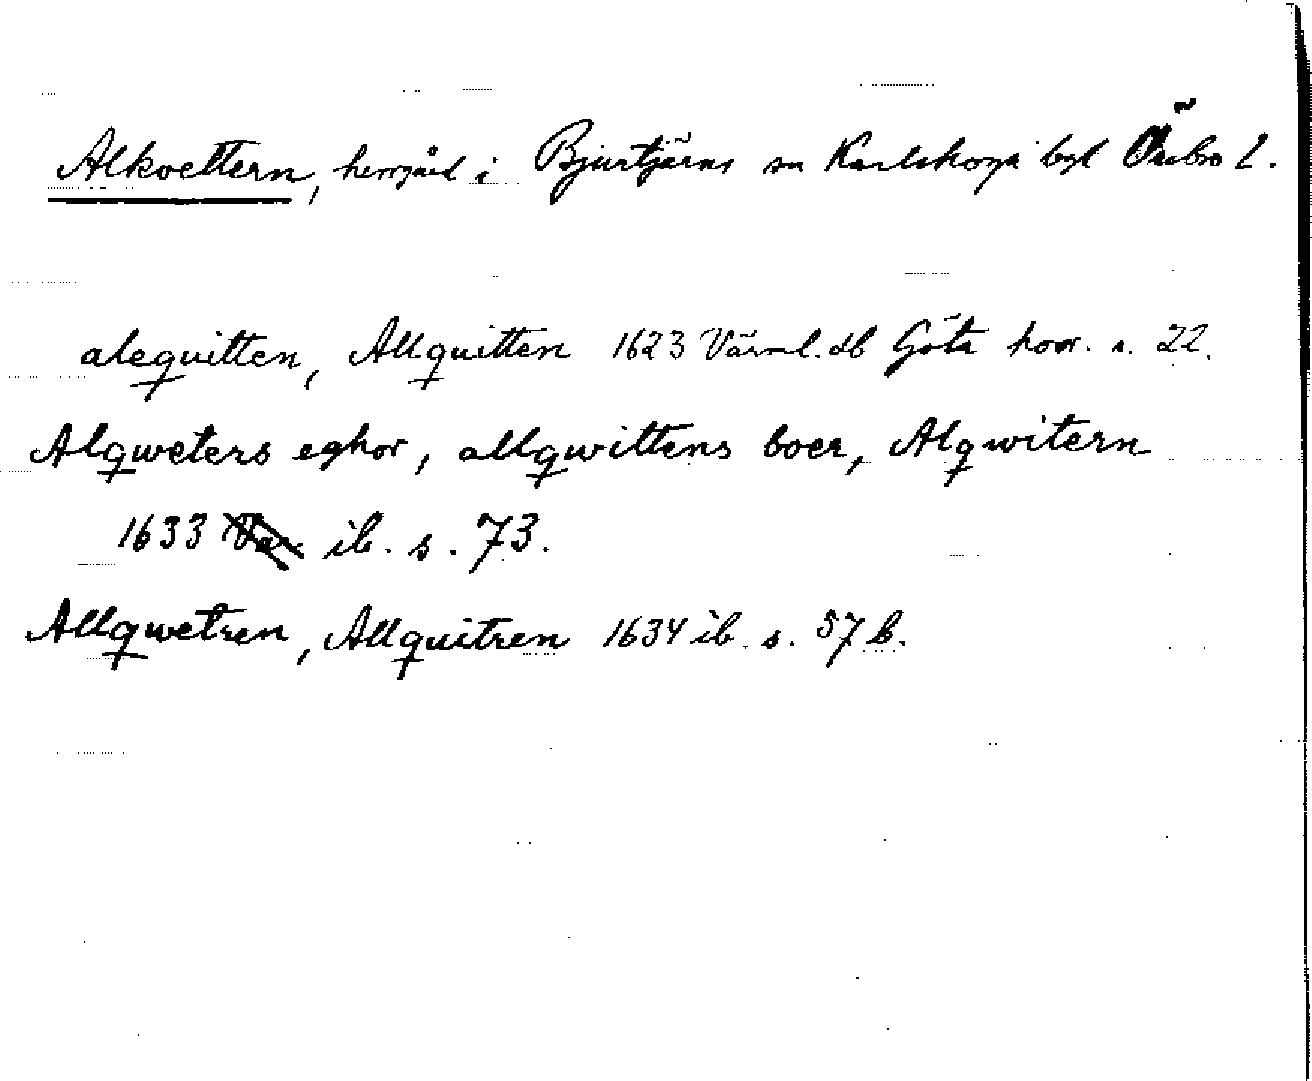 Alkvettern, herrgård i Bjurtjärns sn Karlskoga bgl Örebro l.
alequitten, Allquitten 1623 Värml. db Göta hovr. s. 22.
Alqweters eghor, allqwittens boer, Alqwitern
1633 ib. s. 73.
Allqwetren, Allquitren 1634 ib. s. 57 b.